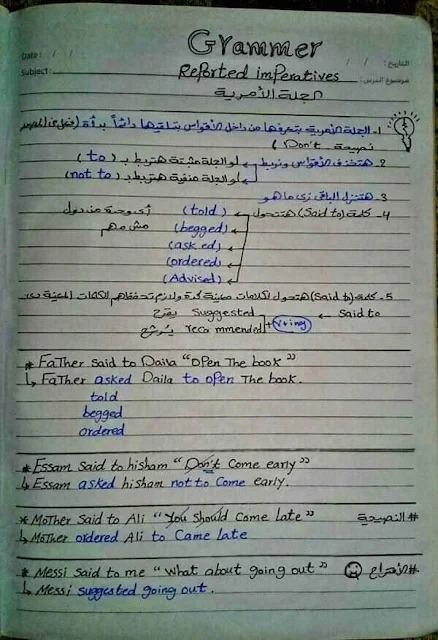 Grammer
Date: / /
التاريخ: / /
Subject:
موضوع الدرس:
Reported imperatives
الجملة الأمرية
1- الجملة الأمرية بتعرفها من داخل الأقواس بتلاقيها دائماً بدأة (فعل في المصدر
نصيحة - Don't)
2- هتحذف الأقواس وتربط لو الجملة مثبتة هتربط بـ (to)
لو الجملة منفية هتربط بـ (not to)
3- هتنزل الباقي زي ما هو
4- كلمة (Said to) هتتحول (told) أي وحدة من دول
(begged) مش مهم
(asked)
(ordered)
(Advised)
5- كلمة (Said to) هتحول لكلمات معينة كدة ولازم تحفظهم الكلمات المعينة
Said to suggested يقترح
recommended يُرشح + V+ing
* Father said to Dalia "open The book"
Father asked Dalia to open The book.
told
begged
ordered
* Essam said to hisham "Don't come early"
Essam asked hisham not to Come early.
* Mother said to Ali "You should come late" # النصيحة
Mother ordered Ali to Came late
* Messi said to me "What about going out" # الأقتراح
Messi suggested going out.